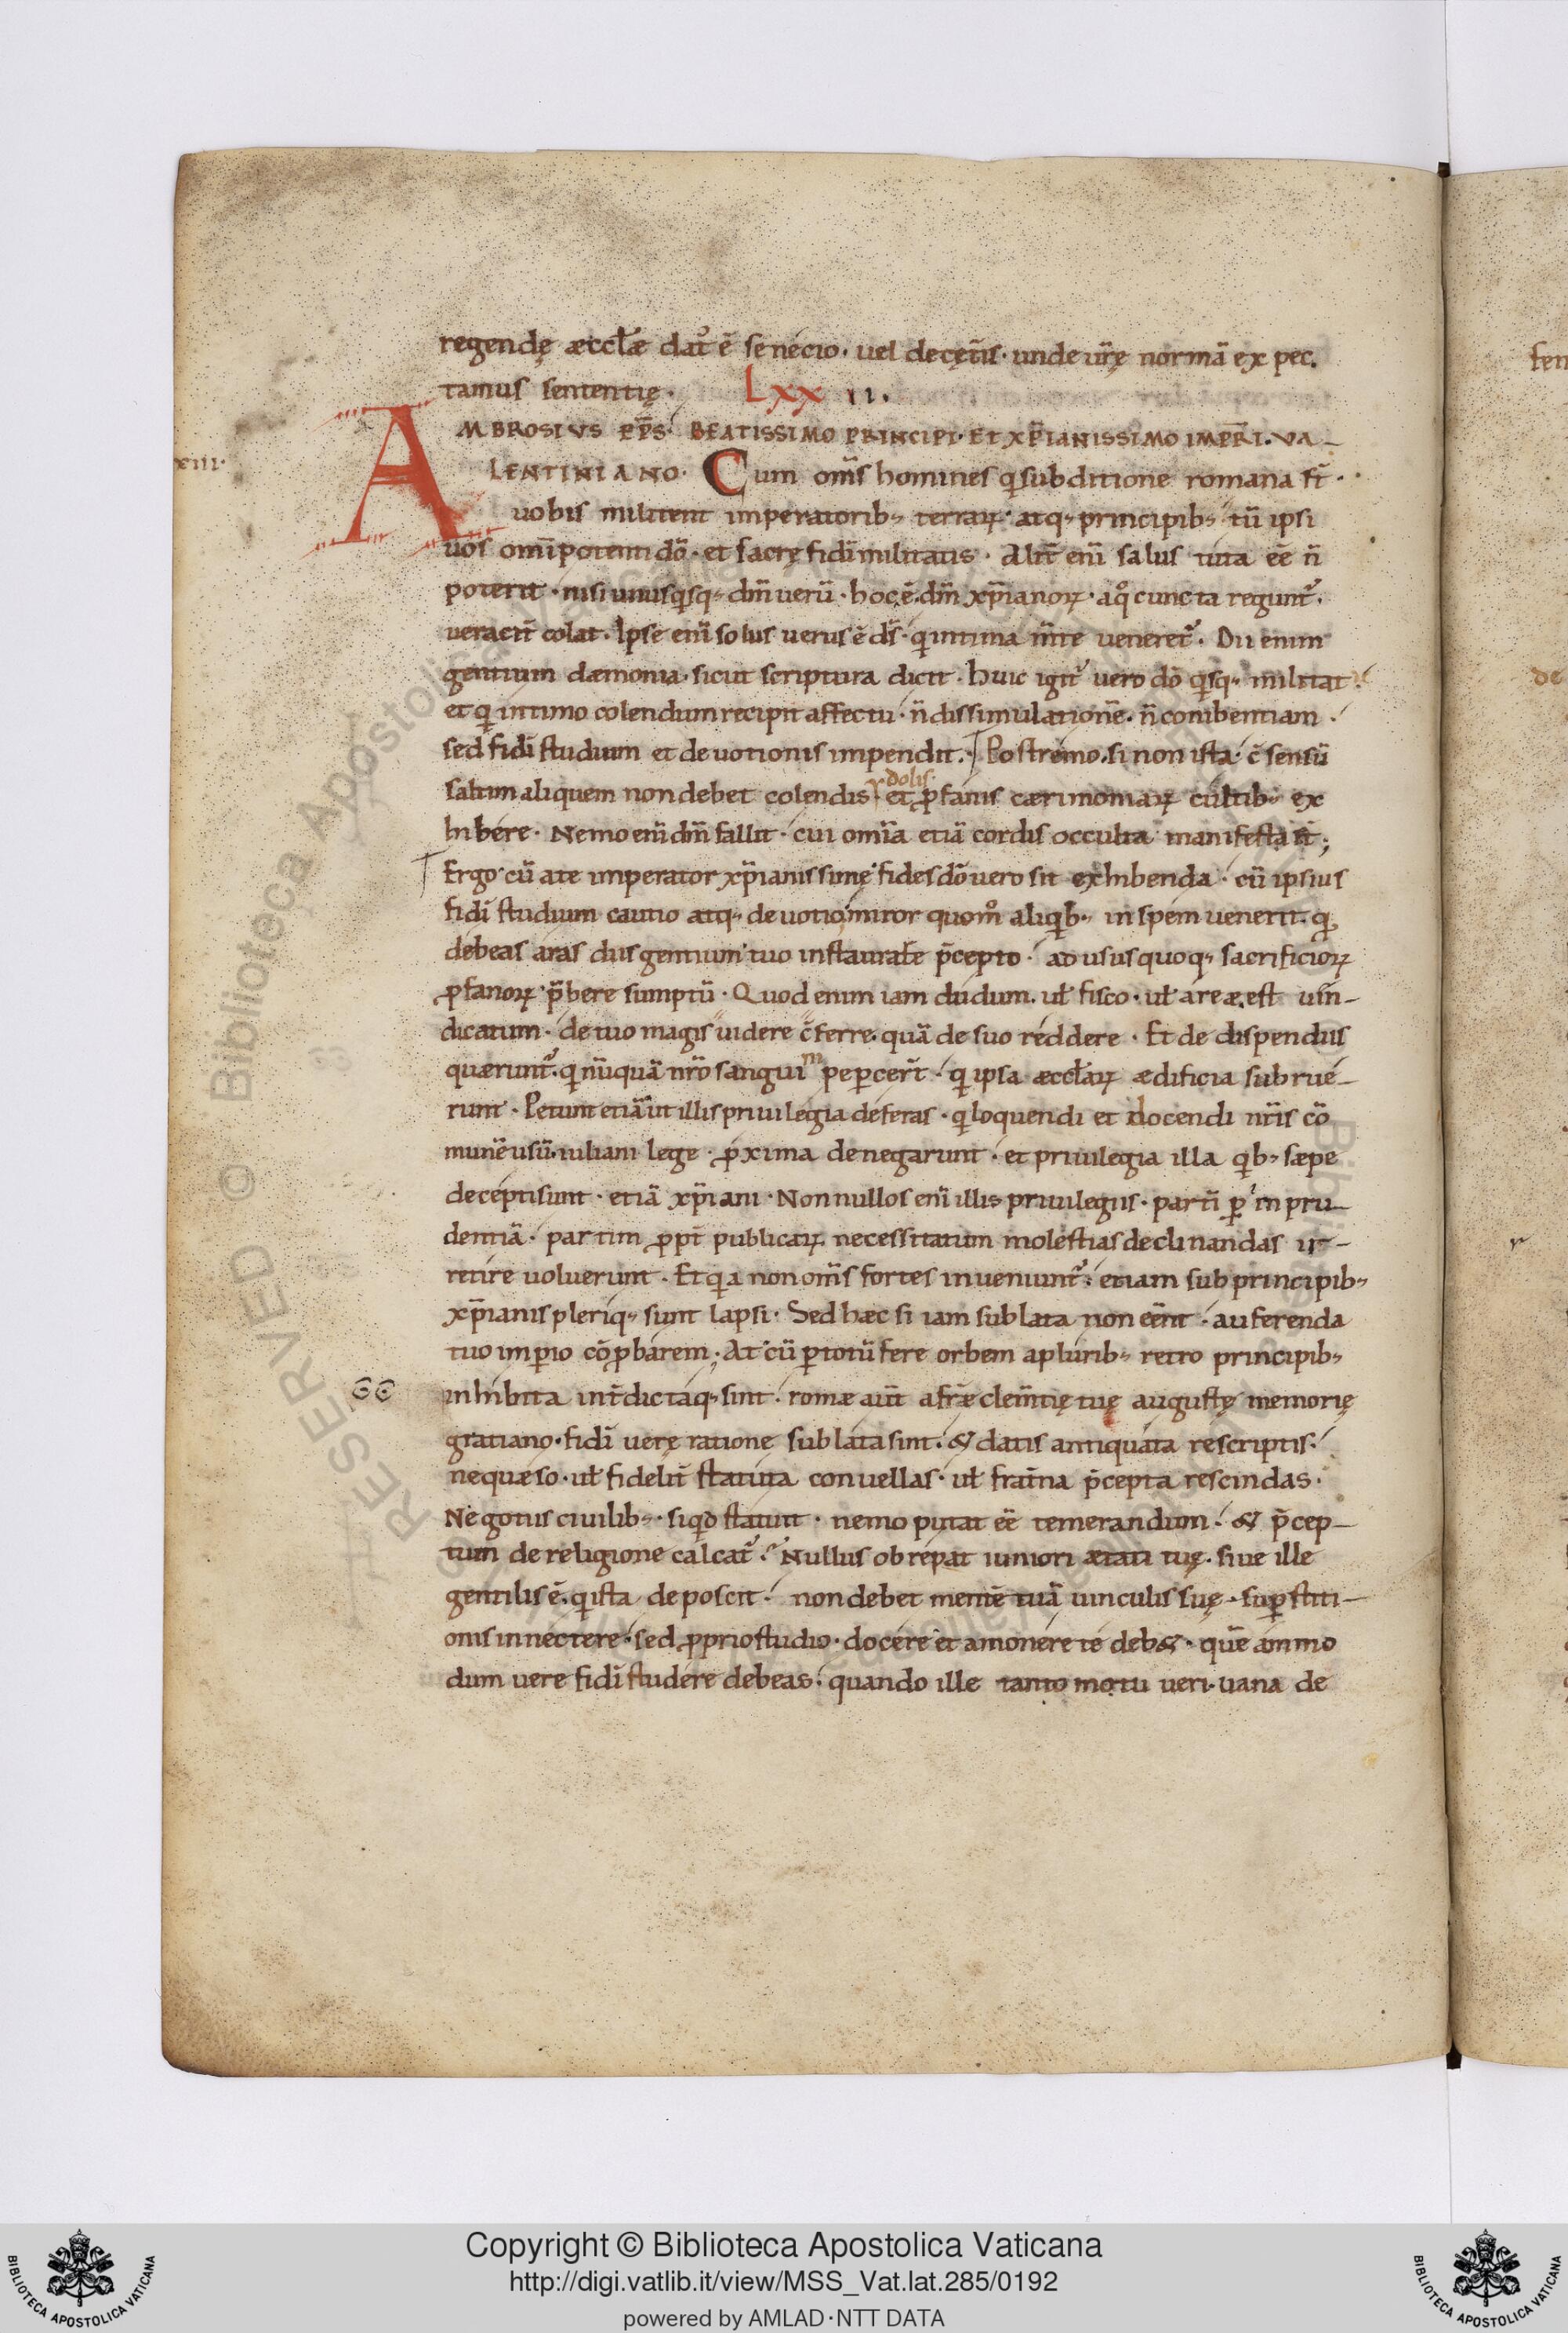 regendę æcclǣ datꝰ ē senecio· uel decętis̄· unde ur̄ę normā ex pec.
tamus sententię· LXX II.
AMBROSIVS EPS̄· BEATISSIMO PRINCIPI· ET XP̄IANISSIMO IMPR̄I. VA-
xiii· LENTINIANO· Cum oms̄ homines q̇ sub ditione romana st̄·
uobis militent imperatorib; terrarꝝ· atq; principib; tū ipsi
uos omīpotenti dō· et sacrę fidī militatis· Alit̄ enī salus tuta eē n̄
poterit· nisi unusq̇sq; dm̄ uerū· hoc, ē dm̄ xp̄ianorꝝ· aq̊ cuncta regunt̃·
ueracit̄ colat· Ipse enī solus uerus ē ds̄· q̇ intima m̄te ueneret̃· Dii enim
gentium dæmonia· sicut scriptura dicit· huic igit̃ uero dō q̇sq; militat·
et q̇ intimo colendum recipit affectu· n̄ dissimulationē· n̄ conibentiam·
sed fidī studium et deuotionis impendit· Postremo· si non ista· c̄ sensū
saltim aliquem non debet colendis ydolis et ꝓfanis cærimoniarꝝ cultib; ex
hibere· Nemo enī dm̄ fallit· cui omīa etiā cordis occulta manifesta st̄;
Ergo cū a te imperator xp̄ianissimę fides dō uero sit exhibenda· cū ipsius
fidī studium cautio atq; deuotio miror quom̊ aliq̇b; in spem uenerit· q̣
debeas aras diis gentium tuo instaurare p̄cepto· ad usus quoq; sacrificiorꝝ
ꝓfanorꝝ p̄bere sumptū· Quod enim iam dudum· ul̄ fisco· ul̄ areæ· est uin-
dicatum· de tuo magis uidere c̄ferre· quā de suo reddere· Et de dispendiis
quærunt̃· q̇ nūquā nr̄o sanguini peꝑcert̄· q̇ ipsa æccl̄arꝝ ædificia subrue-
runt· Petunt etiā ut illis priuilegia deferas· q̇ loquendi et docendi nr̄is cō
munē usū· iuliani lege· ꝓxima denegarunt· et priuilegia illa q̇b; sæpe
decepti sunt· etiā xp̄iani· Non nullos enī illis priuilegiis· partī ꝑ inpru-
dentiā· partim ꝓpt̄ publicarꝝ necessitatum molestias declinandas ir-
retire uoluerunt· Et q̇a non oms̄ fortes inueniunt̃· etiam sub principib;
xp̄ianis pleriq; sunt lapsi· Sed hæc si iam sublata non eēnt· auferenda
tuo imꝑio cōꝓbarem; At cū ꝑ totū fere orbem a plurib; retro principib;
66 inhibita int̄dictaq; sint· romæ aut̄ a fr̄æ clem̄tię tuę augustę memorię
gratiano· fidī uerę ratione sublata sint· & datis antiquata rescriptis·
ne quæso· ul̄ fidelit̄ statuta conuellas· ul̄ frat̄na p̄cepta rescindas·
Negotiis ciuilib; siqd̄ statuit· nemo putat eē temerandum· & p̄cep-
tum de religione calcat̃· Nullus obrepat iuniori ætati tuę· siue ille
gentilis ē· q̇ ista deposcit· non debet mentē tuā uinculis suę· suꝑstiti-
onis innectere· sed ꝓprio studio· docere et amonere te deb&· quē ammo
dum uere fidī studere debeas· quando ille tanto motu ueri· uana de
Copyright © Biblioteca Apostolica Vaticana
http://digi.vatlib.it/view/MSS_Vat.lat.285/0192
powered by AMLAD·NTT DATA